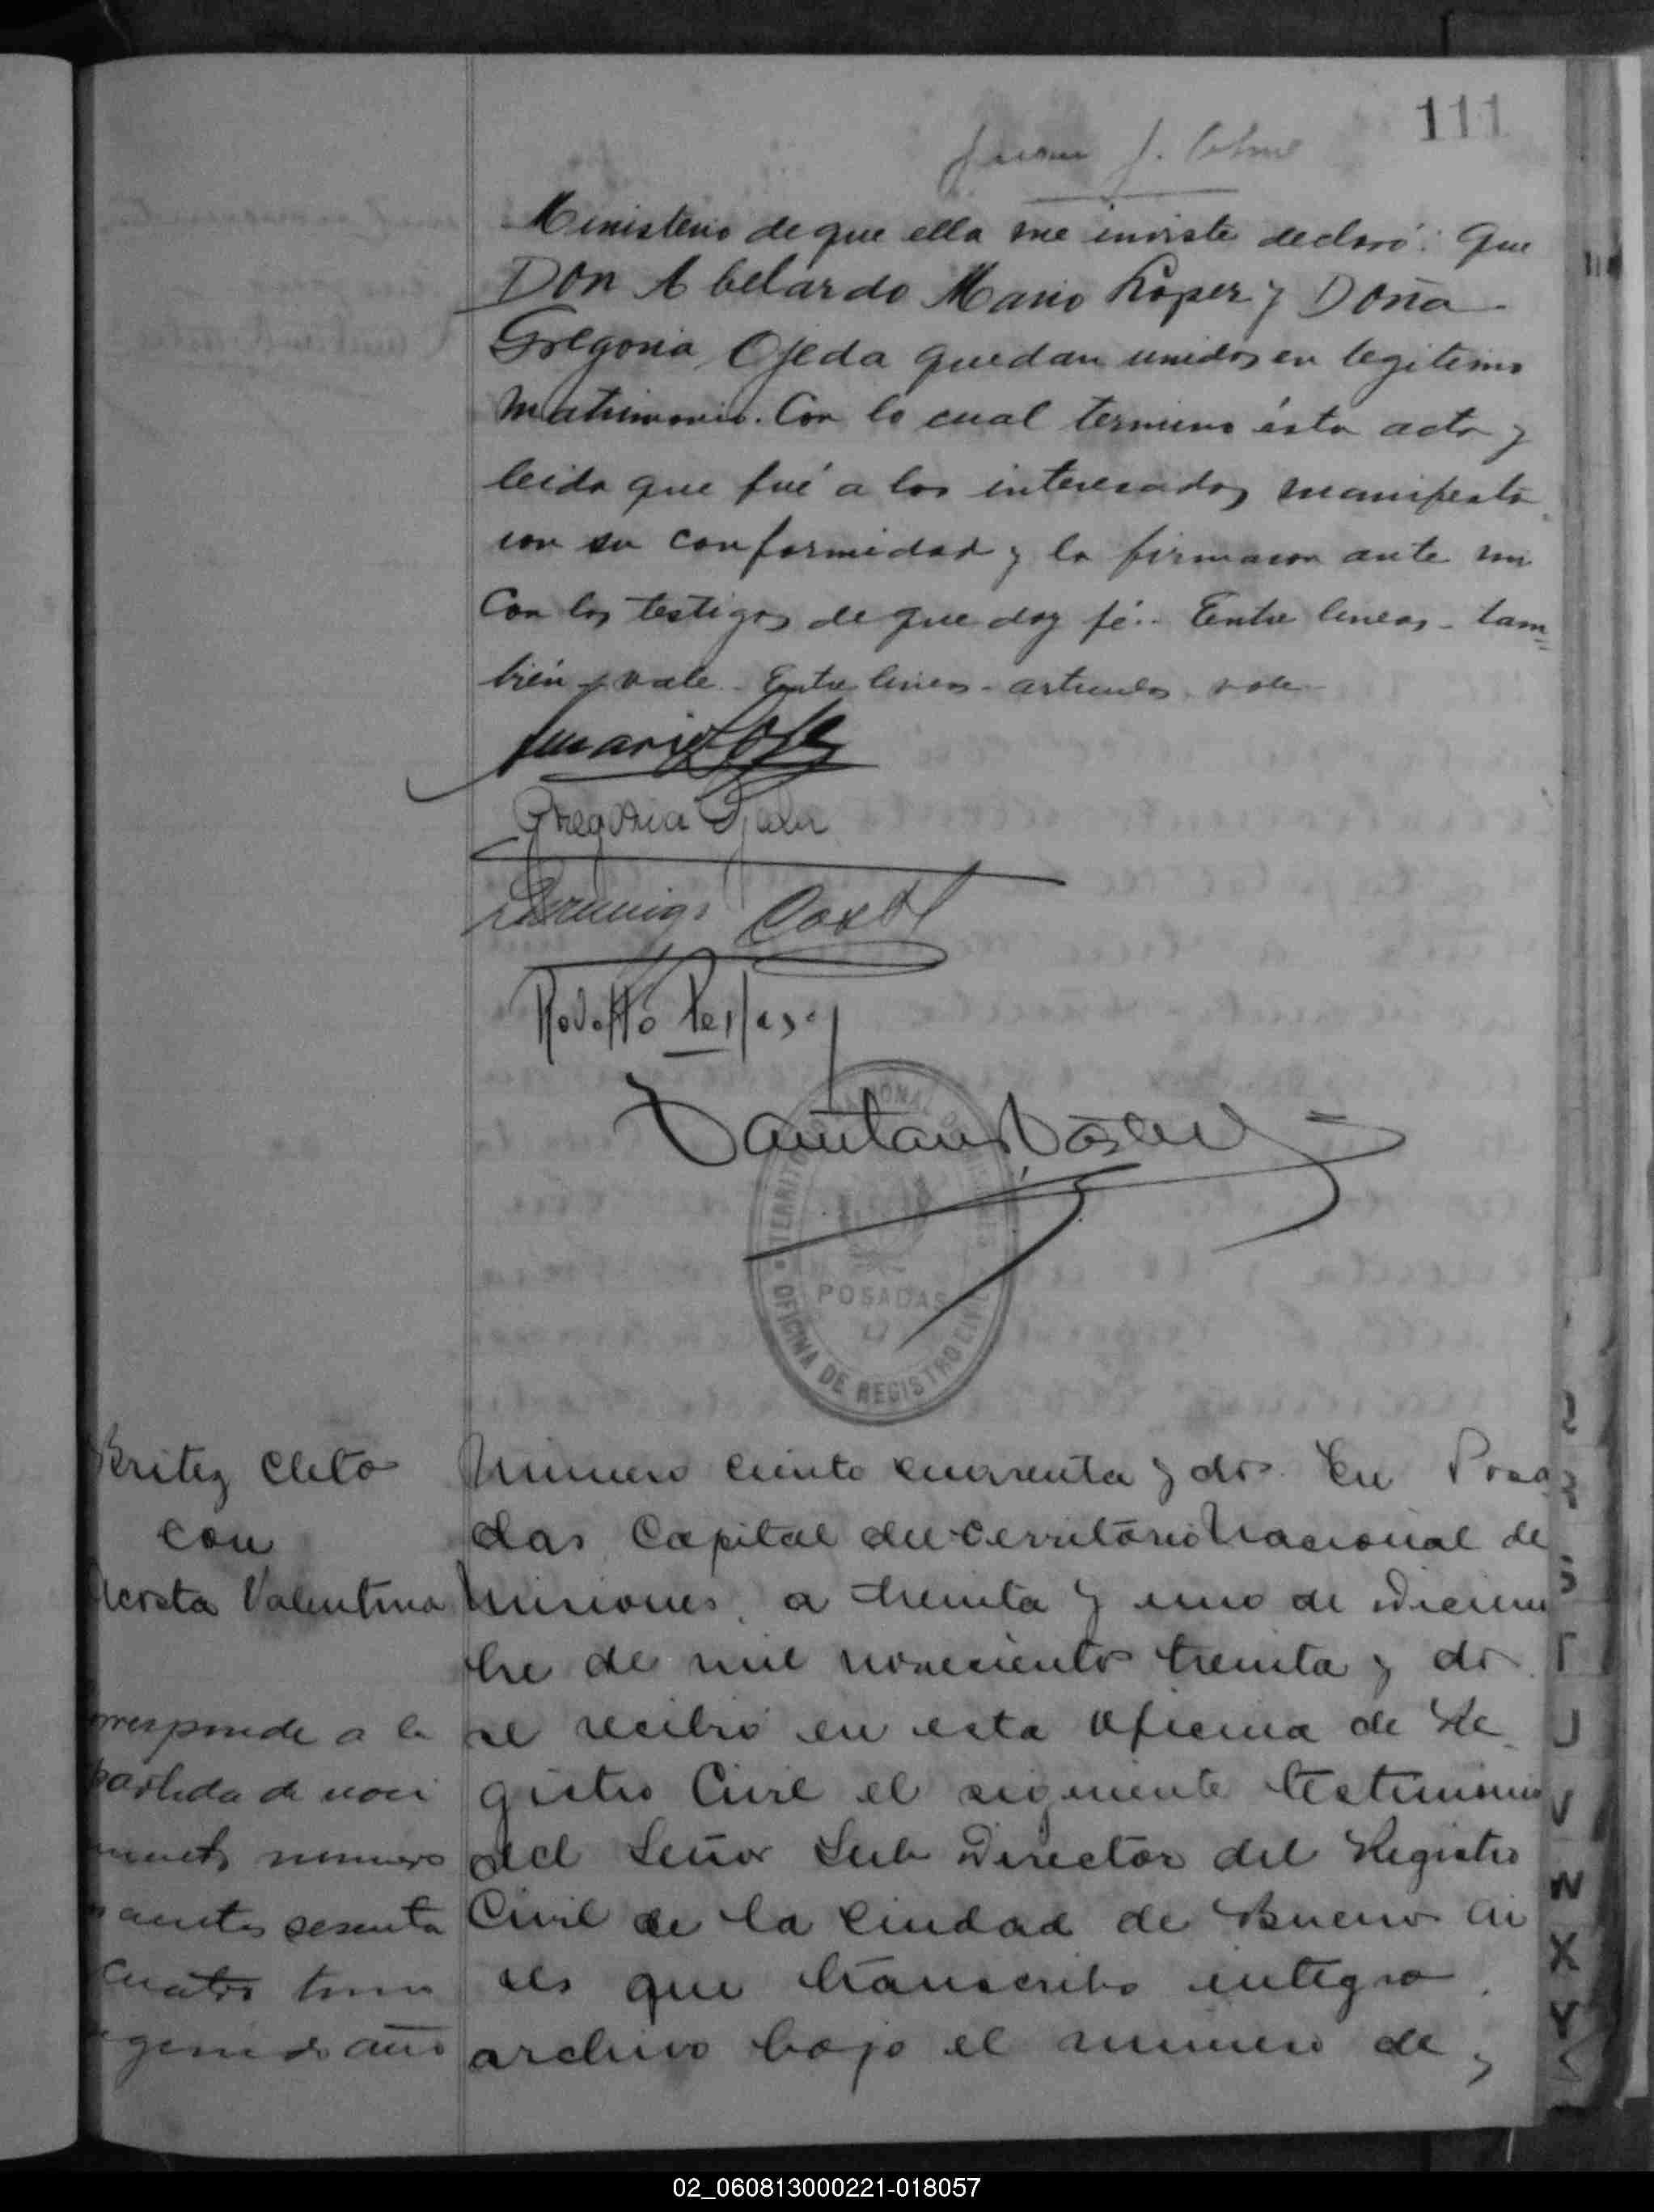 111
Juan J.
Ministerio de que ella me inviste declaró: Que
Don Abelardo Mario Lopez y Doña
Gregoria Ojeda quedan unidos en legitimo
Matrimonio. Con lo cual termino ésta acta y
leida que fué a los interesados manifesta
ron su conformidad y la firmaron ante mi
Con los testigos de que doy fé.. Entre lineas - tam=
bién y vale - Entre lineas - articulos, vale
Gregoria Ojeda
Rodolfo
TERRITORIO NACIONAL DE MISIONES
POSADAS
OFICINA DE REGISTRO CIVIL
Britez Cleto
con
Acosta Valentina
orresponde a la
partida de naci
miento numero
sesenta
cuatro tomo
año
Número ciento cuarenta y dos. En Posa
das Capital del Territorio Nacional de
Misiones, a treinta y uno de Diciem
bre de mil novecientos treinta y dos
se recibió en esta Oficina de Re
gistro Civil el siguiente testimonio
del Señor Sub Director del Registro
Civil de la Ciudad de Buenos Ai
res que transcribo integro
archivo bajo el numero de y
02_060813000221-018057